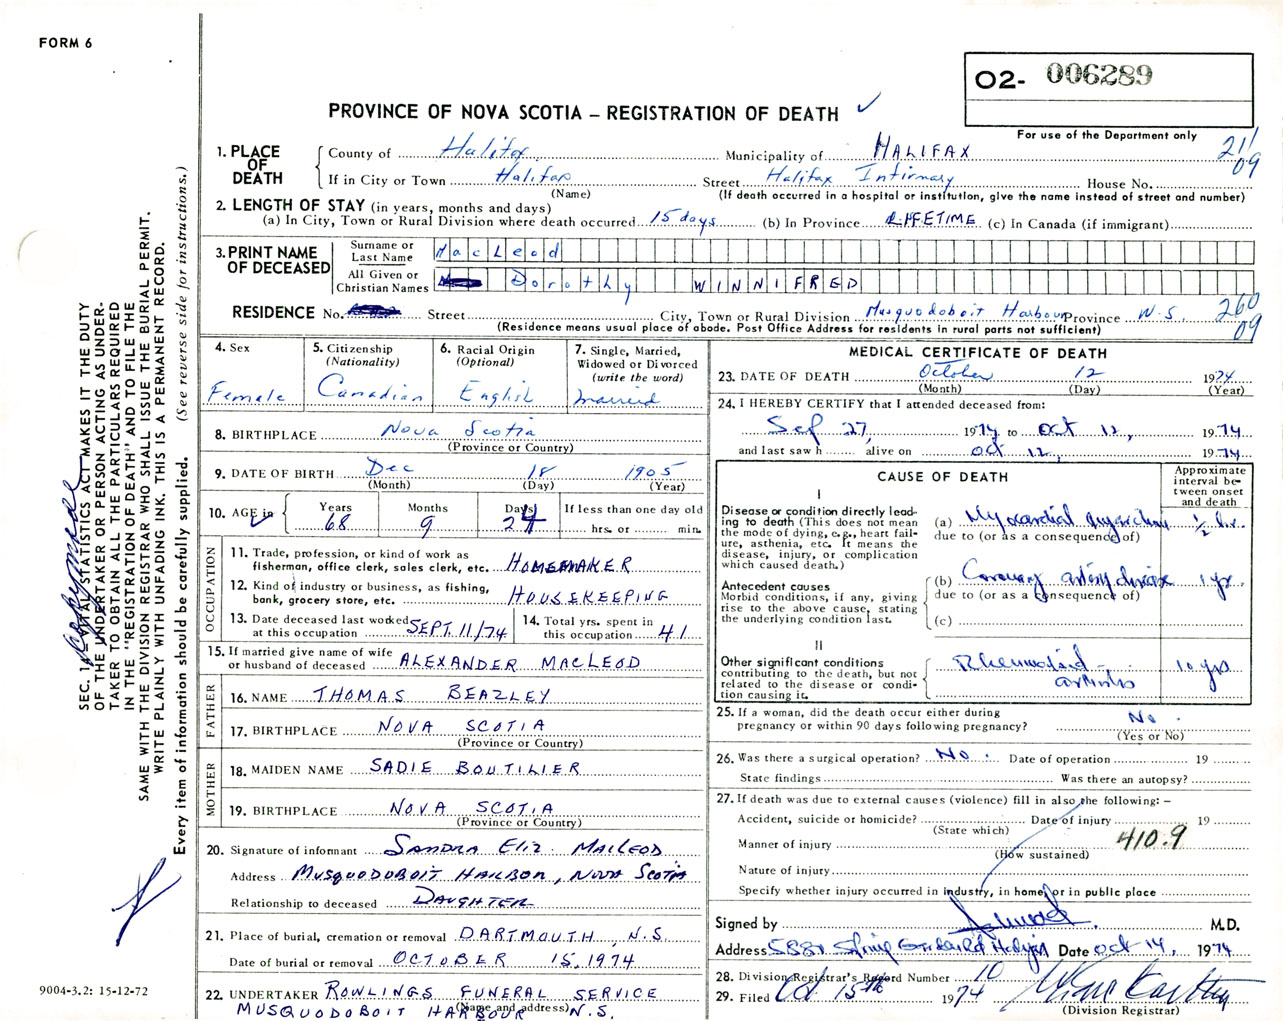 FORM 6
O2- 006289
PROVINCE OF NOVA SCOTIA – REGISTRATION OF DEATH
For use of the Department only
1. PLACE OF DEATH
County of Halifax Municipality of HALIFAX
211 09
If in City or Town Halifax Street Halifax Infirmary House No.
(Name) (If death occurred in a hospital or institution, give the name instead of street and number)
2. LENGTH OF STAY (in years, months and days)
(a) In City, Town or Rural Division where death occurred 15 days (b) In Province LIFETIME (c) In Canada (if immigrant)
3. PRINT NAME OF DECEASED
Surname or Last Name MacLeod
All Given or Christian Names Dorothy WINNIFRED
RESIDENCE No. Street City, Town or Rural Division Musquodoboit Harbour Province N.S.
260 09
(Residence means usual place of abode. Post Office Address for residents in rural parts not sufficient)
4. Sex
Female
5. Citizenship
(Nationality)
Canadian
6. Racial Origin
(Optional)
English
7. Single, Married,
Widowed or Divorced
(write the word)
married
8. BIRTHPLACE Nova Scotia
(Province or Country)
9. DATE OF BIRTH Dec 18 1905
(Month) (Day) (Year)
10. AGE in Years Months Days If less than one day old
68 9 24 hrs. or min.
OCCUPATION
11. Trade, profession, or kind of work as
fisherman, office clerk, sales clerk, etc. HOMEMAKER
12. Kind of industry or business, as fishing,
bank, grocery store, etc. HOUSEKEEPING
13. Date deceased last worked
at this occupation SEPT. 11/74
14. Total yrs. spent in
this occupation 41
15. If married give name of wife
or husband of deceased ALEXANDER MACLEOD
FATHER
16. NAME THOMAS BEAZLEY
17. BIRTHPLACE NOVA SCOTIA
(Province or Country)
MOTHER
18. MAIDEN NAME SADIE BOUTILIER
19. BIRTHPLACE NOVA SCOTIA
(Province or Country)
20. Signature of informant SANDRA ELIZ. MACLEOD
Address MUSQUODOBOIT HARBOR, NOVA SCOTIA
Relationship to deceased DAUGHTER
21. Place of burial, cremation or removal DARTMOUTH, N.S.
Date of burial or removal OCTOBER 15, 1974
22. UNDERTAKER ROWLINGS FUNERAL SERVICE
(Name and address)
MUSQUODOBOIT HARBOUR N.S.
MEDICAL CERTIFICATE OF DEATH
23. DATE OF DEATH October 12 1974
(Month) (Day) (Year)
24. I HEREBY CERTIFY that I attended deceased from:
Sep 27, 1974 to Oct 12, 1974
and last saw h alive on Oct 12, 1974
CAUSE OF DEATH
Approximate interval between onset and death
I
Disease or condition directly lead-
ing to death (This does not mean
the mode of dying, e.g., heart fail-
ure, asthenia, etc. It means the
disease, injury, or complication
which caused death.)
(a) Myocardial infarction ½ hr.
due to (or as a consequence of)
Antecedent causes
Morbid conditions, if any, giving
rise to the above cause, stating
the underlying condition last.
(b) Coronary artery disease 1 yr.
due to (or as a consequence of)
(c)
II
Other significant conditions
contributing to the death, but not
related to the disease or condi-
tion causing it.
Rheumatoid arthritis 10 yrs
25. If a woman, did the death occur either during
pregnancy or within 90 days following pregnancy? No.
(Yes or No)
26. Was there a surgical operation? No. Date of operation 19
State findings Was there an autopsy?
27. If death was due to external causes (violence) fill in also the following: –
Accident, suicide or homicide? Date of injury 19
(State which)
Manner of injury 410.9
(How sustained)
Nature of injury
Specify whether injury occurred in industry, in home, or in public place
Signed by M.D.
Address 5881 Spring Garden Rd Halifax Date Oct 14, 1974
28. Division Registrar's Record Number 10
29. Filed Oct 15th 1974
(Division Registrar)
SEC. 1 VITAL STATISTICS ACT MAKES IT THE DUTY
OF THE UNDERTAKER OR PERSON ACTING AS UNDER-
TAKER TO OBTAIN ALL THE PARTICULARS REQUIRED
IN THE "REGISTRATION OF DEATH" AND TO FILE THE
SAME WITH THE DIVISION REGISTRAR WHO SHALL ISSUE THE BURIAL PERMIT.
WRITE PLAINLY WITH UNFADING INK. THIS IS A PERMANENT RECORD.
Every item of information should be carefully supplied. (See reverse side for instructions.)
9004-3.2: 15-12-72